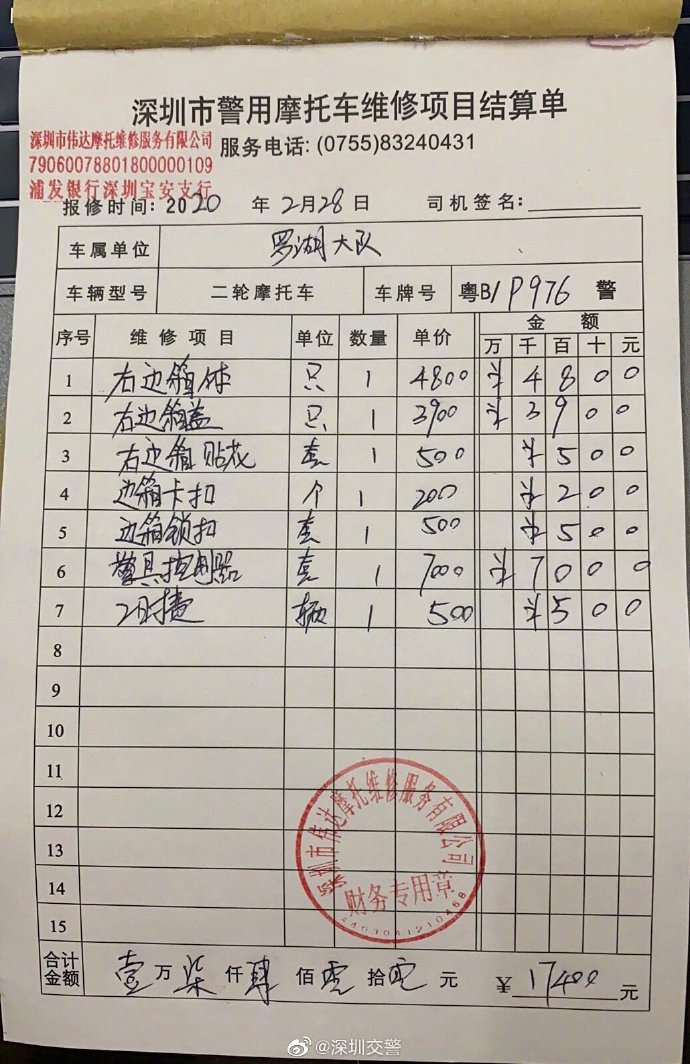 深圳市警用摩托车维修项目结算单
深圳市伟达摩托维修服务有限公司
服务电话: (0755)83240431
79060078801800000109
浦发银行深圳宝安支行
报修时间: 2020 年 2月28日 司机签名:
车属单位 罗湖大队
车辆型号 二轮摩托车 车牌号 粤B/P976 警
序号 维修项目 单位 数量 单价 金额
万 千 百 十 元
1 右边箱体 只 1 4800 ¥ 4 8 0 0
2 右边箱盖 只 1 3900 ¥ 3 9 0 0
3 右边箱贴花 套 1 500 ¥ 5 0 0
4 边箱卡扣 个 1 200 ¥ 2 0 0
5 边箱锁扣 套 1 500 ¥ 5 0 0
6 警具控制器 套 1 7000 ¥ 7 0 0 0
7 工时费 辆 1 500 ¥ 5 0 0
8
9
10
11
12
13
14
15
深圳市伟达摩托维修服务有限公司
财务专用章
合计金额 壹万柒仟肆佰零拾零元 ¥17400元
@深圳交警